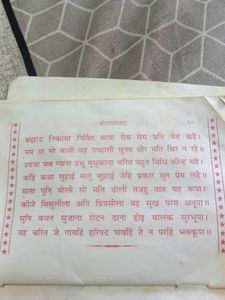 श्रीरामावतार
ब्रह्मांड निकाया निर्मित माया रोम रोम प्रति वेद कहै।
मम उर सो वासी यह उपहासी सुनत धीर मति थिर न रहै॥
उपजा जब ग्याना प्रभु मुसुकाना चरित बहुत बिधि कीन्ह चहै।
कहि कथा सुहाई मातु बुझाई जेहि प्रकार सुत प्रेम लहै॥
माता पुनि बोली सो मति डोली तजहु तात यह रूपा।
कीजै सिसुलीला अति प्रियसीला यह सुख परम अनूपा॥
सुनि बचन सुजाना रोदन ठाना होइ बालक सुरभूपा।
यह चरित जे गावहिं हरिपद पावहिं ते न परहिं भवकूपा॥